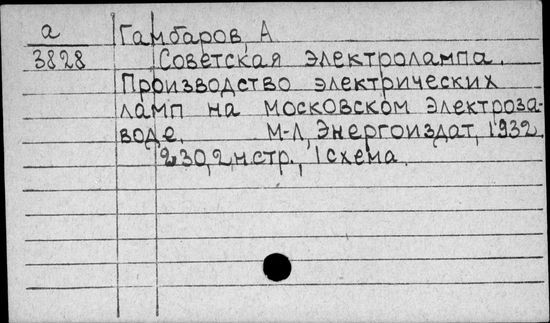 а Гамбаров, А
3828 Советская электролампа.
Производство электрических
ламп на московском электроза-
воде. М-Л, Энергоиздат, 1932.
230, 2 н.стр., 1 схема.